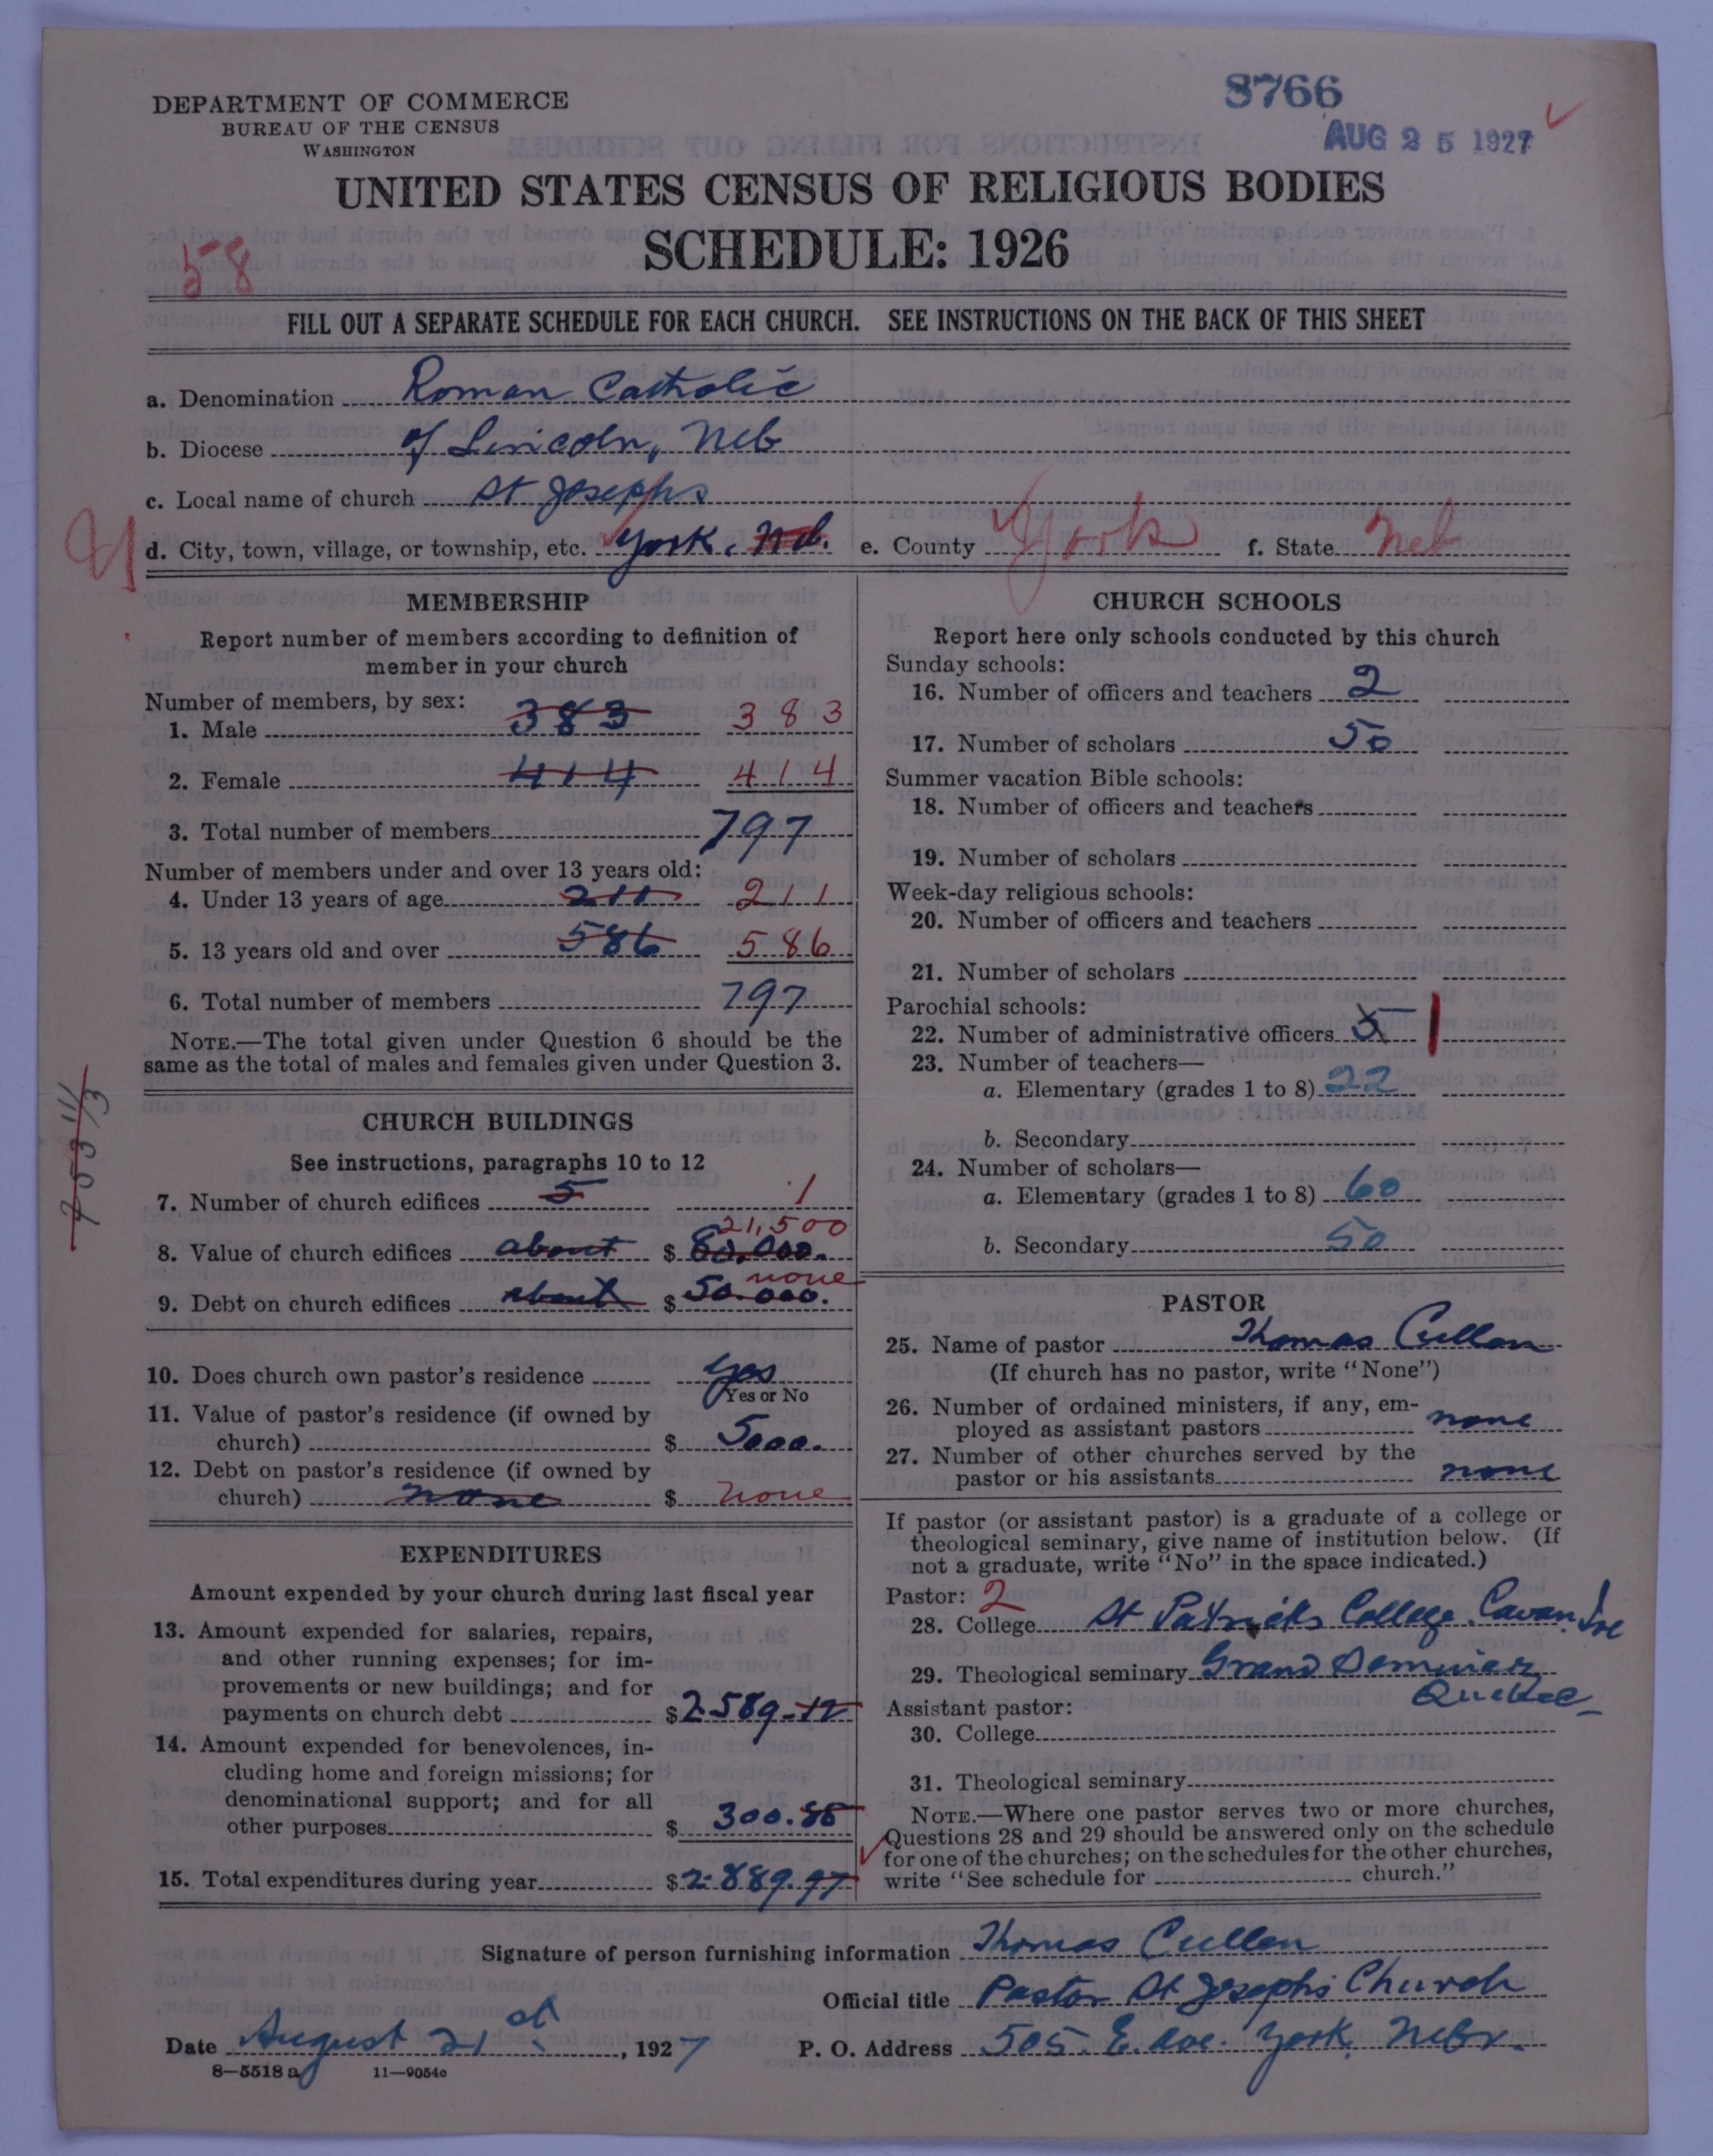 8766
AUG 25 1927
DEPARTMENT OF COMMERCE
BUREAU OF THE CENSUS
WASHINGTON
UNITED STATES CENSUS OF RELIGIOUS BODIES
SCHEDULE: 1926
58
FILL OUT A SEPARATE SCHEDULE FOR EACH CHURCH. SEE INSTRUCTIONS ON THE BACK OF THIS SHEET
a. Denomination Roman Catholic
b. Diocese of Lincoln, Neb
c. Local name of church St Josephs
d. City, town, village, or township, etc. York. e. County York f. State Neb
MEMBERSHIP
Report number of members according to definition of
member in your church
Number of members, by sex:
1. Male 383 383
2. Female 414 414
3. Total number of members 797
Number of members under and over 13 years old:
4. Under 13 years of age 211 211
5. 13 years old and over 586 586
6. Total number of members 797
NOTE.—The total given under Question 6 should be the
same as the total of males and females given under Question 3.
CHURCH BUILDINGS
See instructions, paragraphs 10 to 12
7. Number of church edifices 5 1
21,500
8. Value of church edifices about $ 80.000.
none
9. Debt on church edifices about $ 50.000.
10. Does church own pastor's residence yes
Yes or No
11. Value of pastor's residence (if owned by
church) $ 5000.
12. Debt on pastor's residence (if owned by
church) none $ none
EXPENDITURES
Amount expended by your church during last fiscal year
13. Amount expended for salaries, repairs,
and other running expenses; for im-
provements or new buildings; and for
payments on church debt $ 2589.12
14. Amount expended for benevolences, in-
cluding home and foreign missions; for
denominational support; and for all
other purposes $ 300.
15. Total expenditures during year $ 2889.97
CHURCH SCHOOLS
Report here only schools conducted by this church
Sunday schools:
16. Number of officers and teachers 2
17. Number of scholars 50
Summer vacation Bible schools:
18. Number of officers and teachers
19. Number of scholars
Week-day religious schools:
20. Number of officers and teachers
21. Number of scholars
Parochial schools:
22. Number of administrative officers 5 1
23. Number of teachers—
a. Elementary (grades 1 to 8) 22
b. Secondary
24. Number of scholars—
a. Elementary (grades 1 to 8) 60
b. Secondary 50
PASTOR
25. Name of pastor Thomas Cullen
(If church has no pastor, write "None")
26. Number of ordained ministers, if any, em-
ployed as assistant pastors none
27. Number of other churches served by the
pastor or his assistants none
If pastor (or assistant pastor) is a graduate of a college or
theological seminary, give name of institution below. (If
not a graduate, write "No" in the space indicated.)
Pastor: 2
28. College St Patricks College. Cavan. Ire
29. Theological seminary Grand Seminary
Quebec
Assistant pastor:
30. College
31. Theological seminary
NOTE.—Where one pastor serves two or more churches,
Questions 28 and 29 should be answered only on the schedule
for one of the churches; on the schedules for the other churches,
write "See schedule for church."
Signature of person furnishing information Thomas Cullen
Official title Pastor St Josephs Church
Date August 21st, 1927 P. O. Address 505. E. Ave. York, Nebr.
8—5518 a 11—9054c